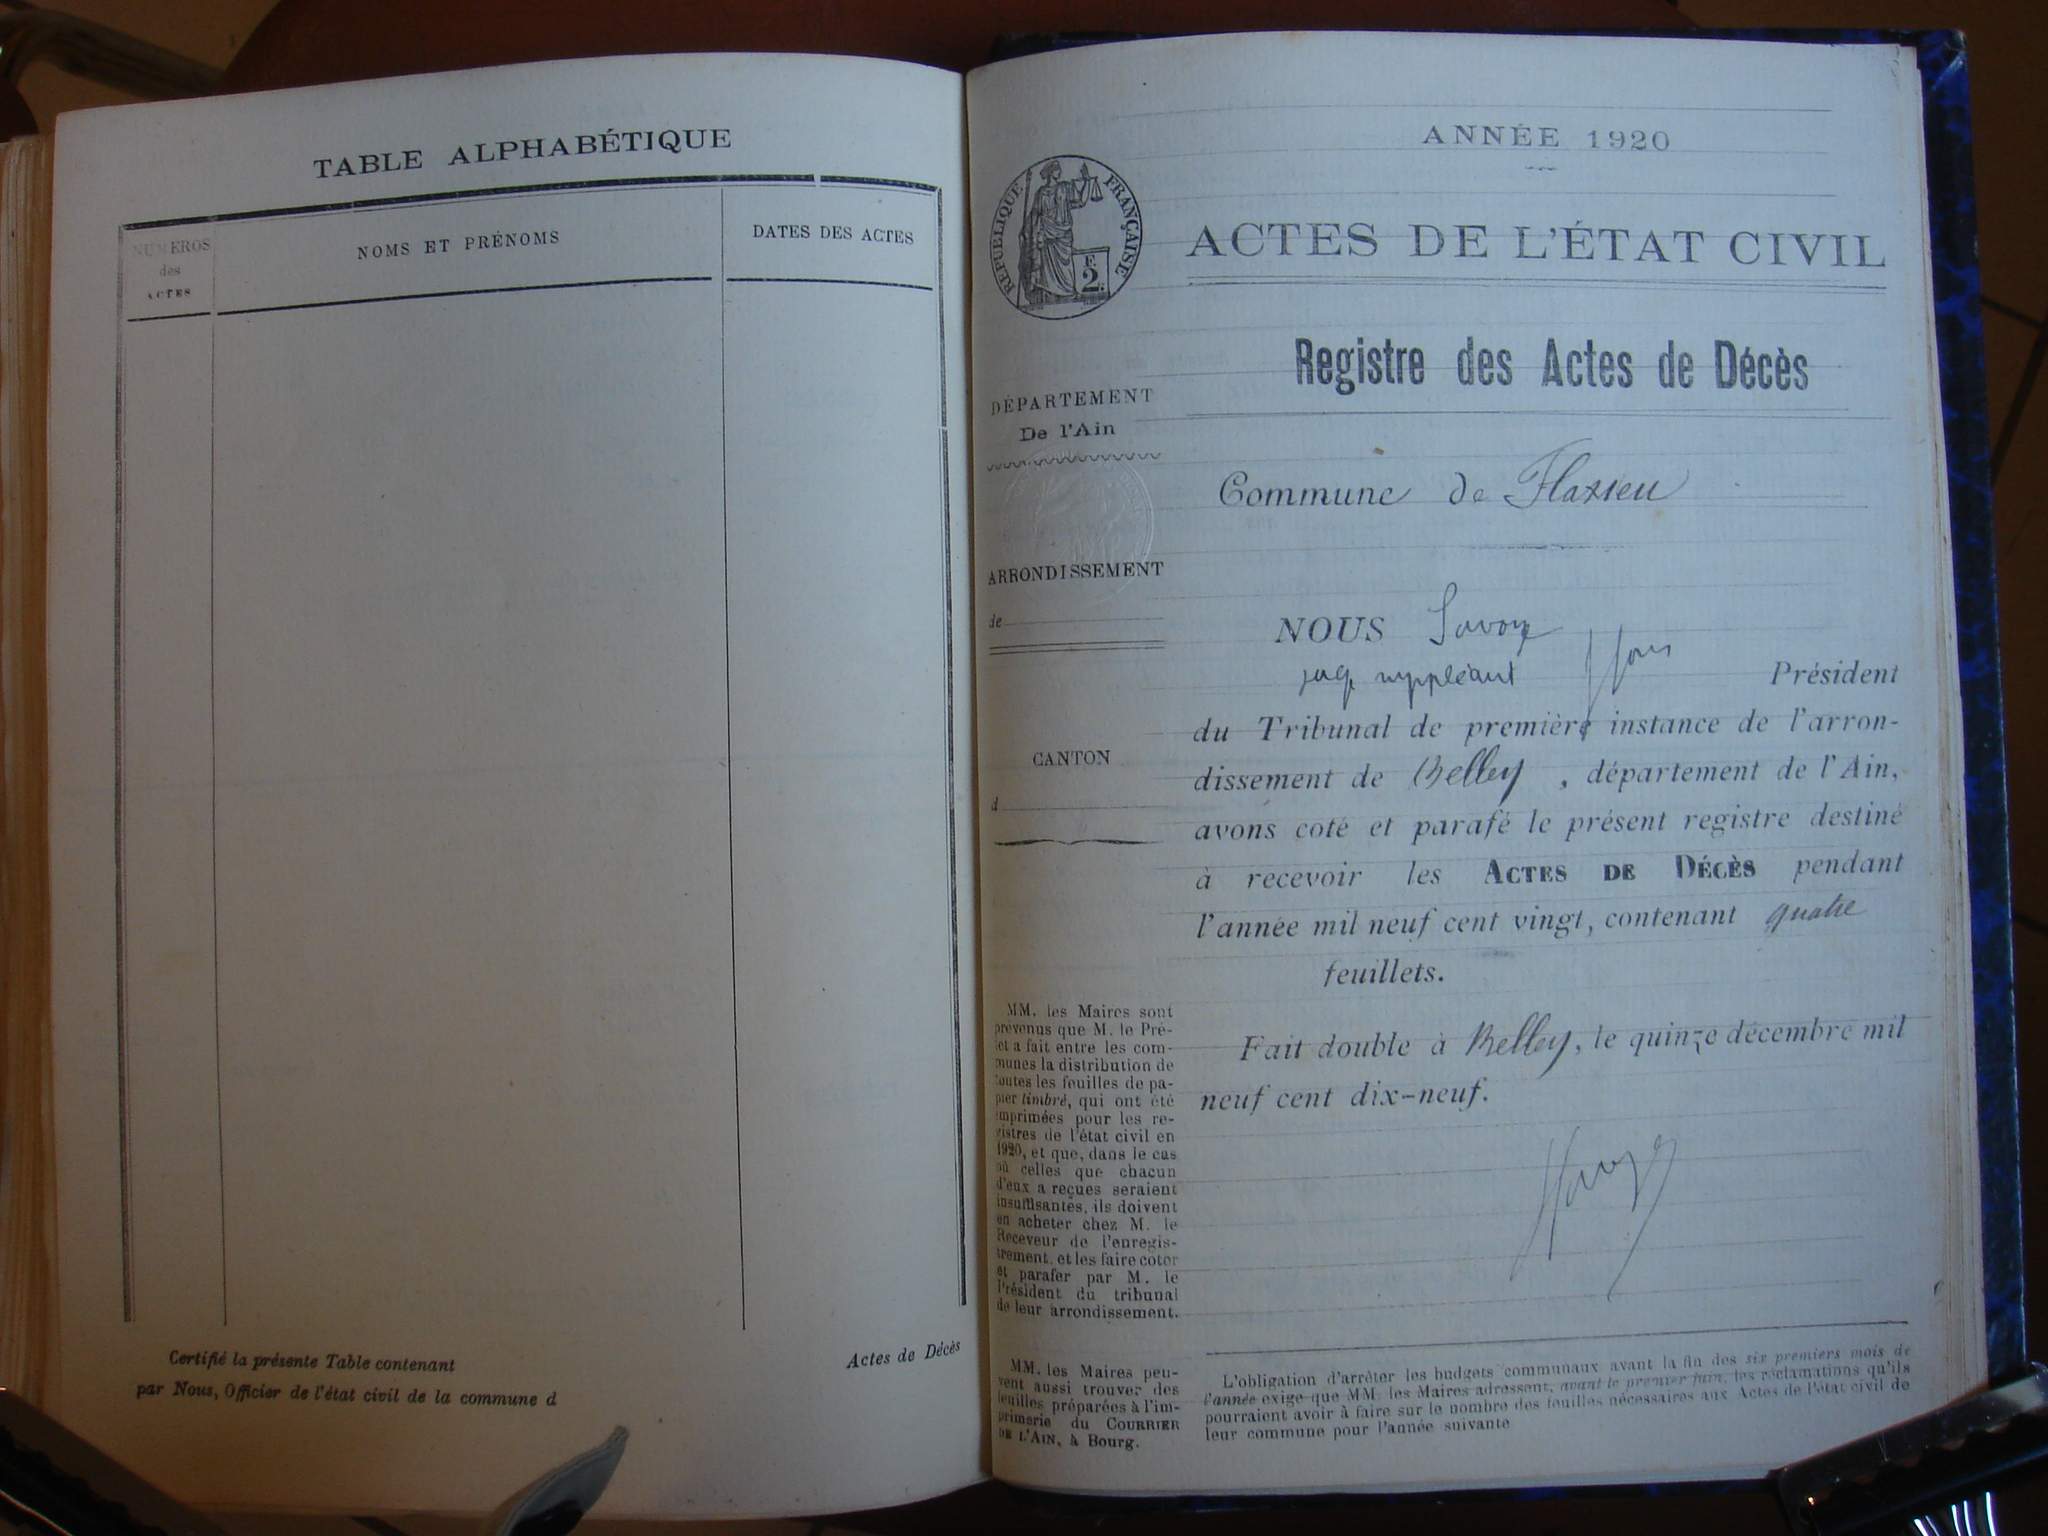 TABLE ALPHABÉTIQUE
NUMÉROS
des
ACTES
NOMS ET PRÉNOMS
DATES DES ACTES
Certifié la présente Table contenant
par Nous, Officier de l'état civil de la commune d
Actes de Décès
ANNÉE 1920
RÉPUBLIQUE FRANÇAISE
F.
2
ACTES DE L'ÉTAT CIVIL
Registre des Actes de Décès
DÉPARTEMENT
De l'Ain
ARRONDISSEMENT
de
CANTON
d
MM. les Maires sont
prévenus que M. le Pré-
fet a fait entre les com-
munes la distribution de
toutes les feuilles de pa-
pier timbré, qui ont été
imprimées pour les re-
gistres de l'état civil en
1920, et que, dans le cas
où celles que chacun
d'eux a reçues seraient
insuffisantes, ils doivent
en acheter chez M. le
Receveur de l'enregis-
trement, et les faire coter
et parafer par M. le
Président du tribunal
de leur arrondissement.
MM. les Maires peu-
vent aussi trouver des
feuilles préparées à l'im-
primerie du COURRIER
DE L'AIN, à Bourg.
Commune de Flaxieu
NOUS
suppléant Président
du Tribunal de première instance de l'arron-
dissement de Belley, département de l'Ain,
avons coté et parafé le présent registre destiné
à recevoir les ACTES DE DÉCÈS pendant
l'année mil neuf cent vingt, contenant quatre
feuillets.
Fait double à Belley, le quinze décembre mil
neuf cent dix-neuf.
L'obligation d'arrêter les budgets communaux avant la fin des six premiers mois de
l'année exige que MM. les Maires adressent, avant le premier juin, les réclamations qu'ils
pourraient avoir à faire sur le nombre des feuilles nécessaires aux Actes de l'état civil de
leur commune pour l'année suivante